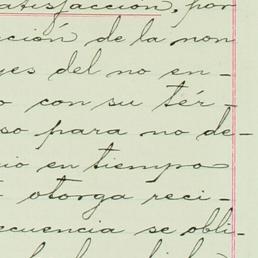 atisfacción, por
ción de la non
yes del no en-
o con su tér-
so para no de-
io en tiempo
otorga reci-
ecuencia se obli-